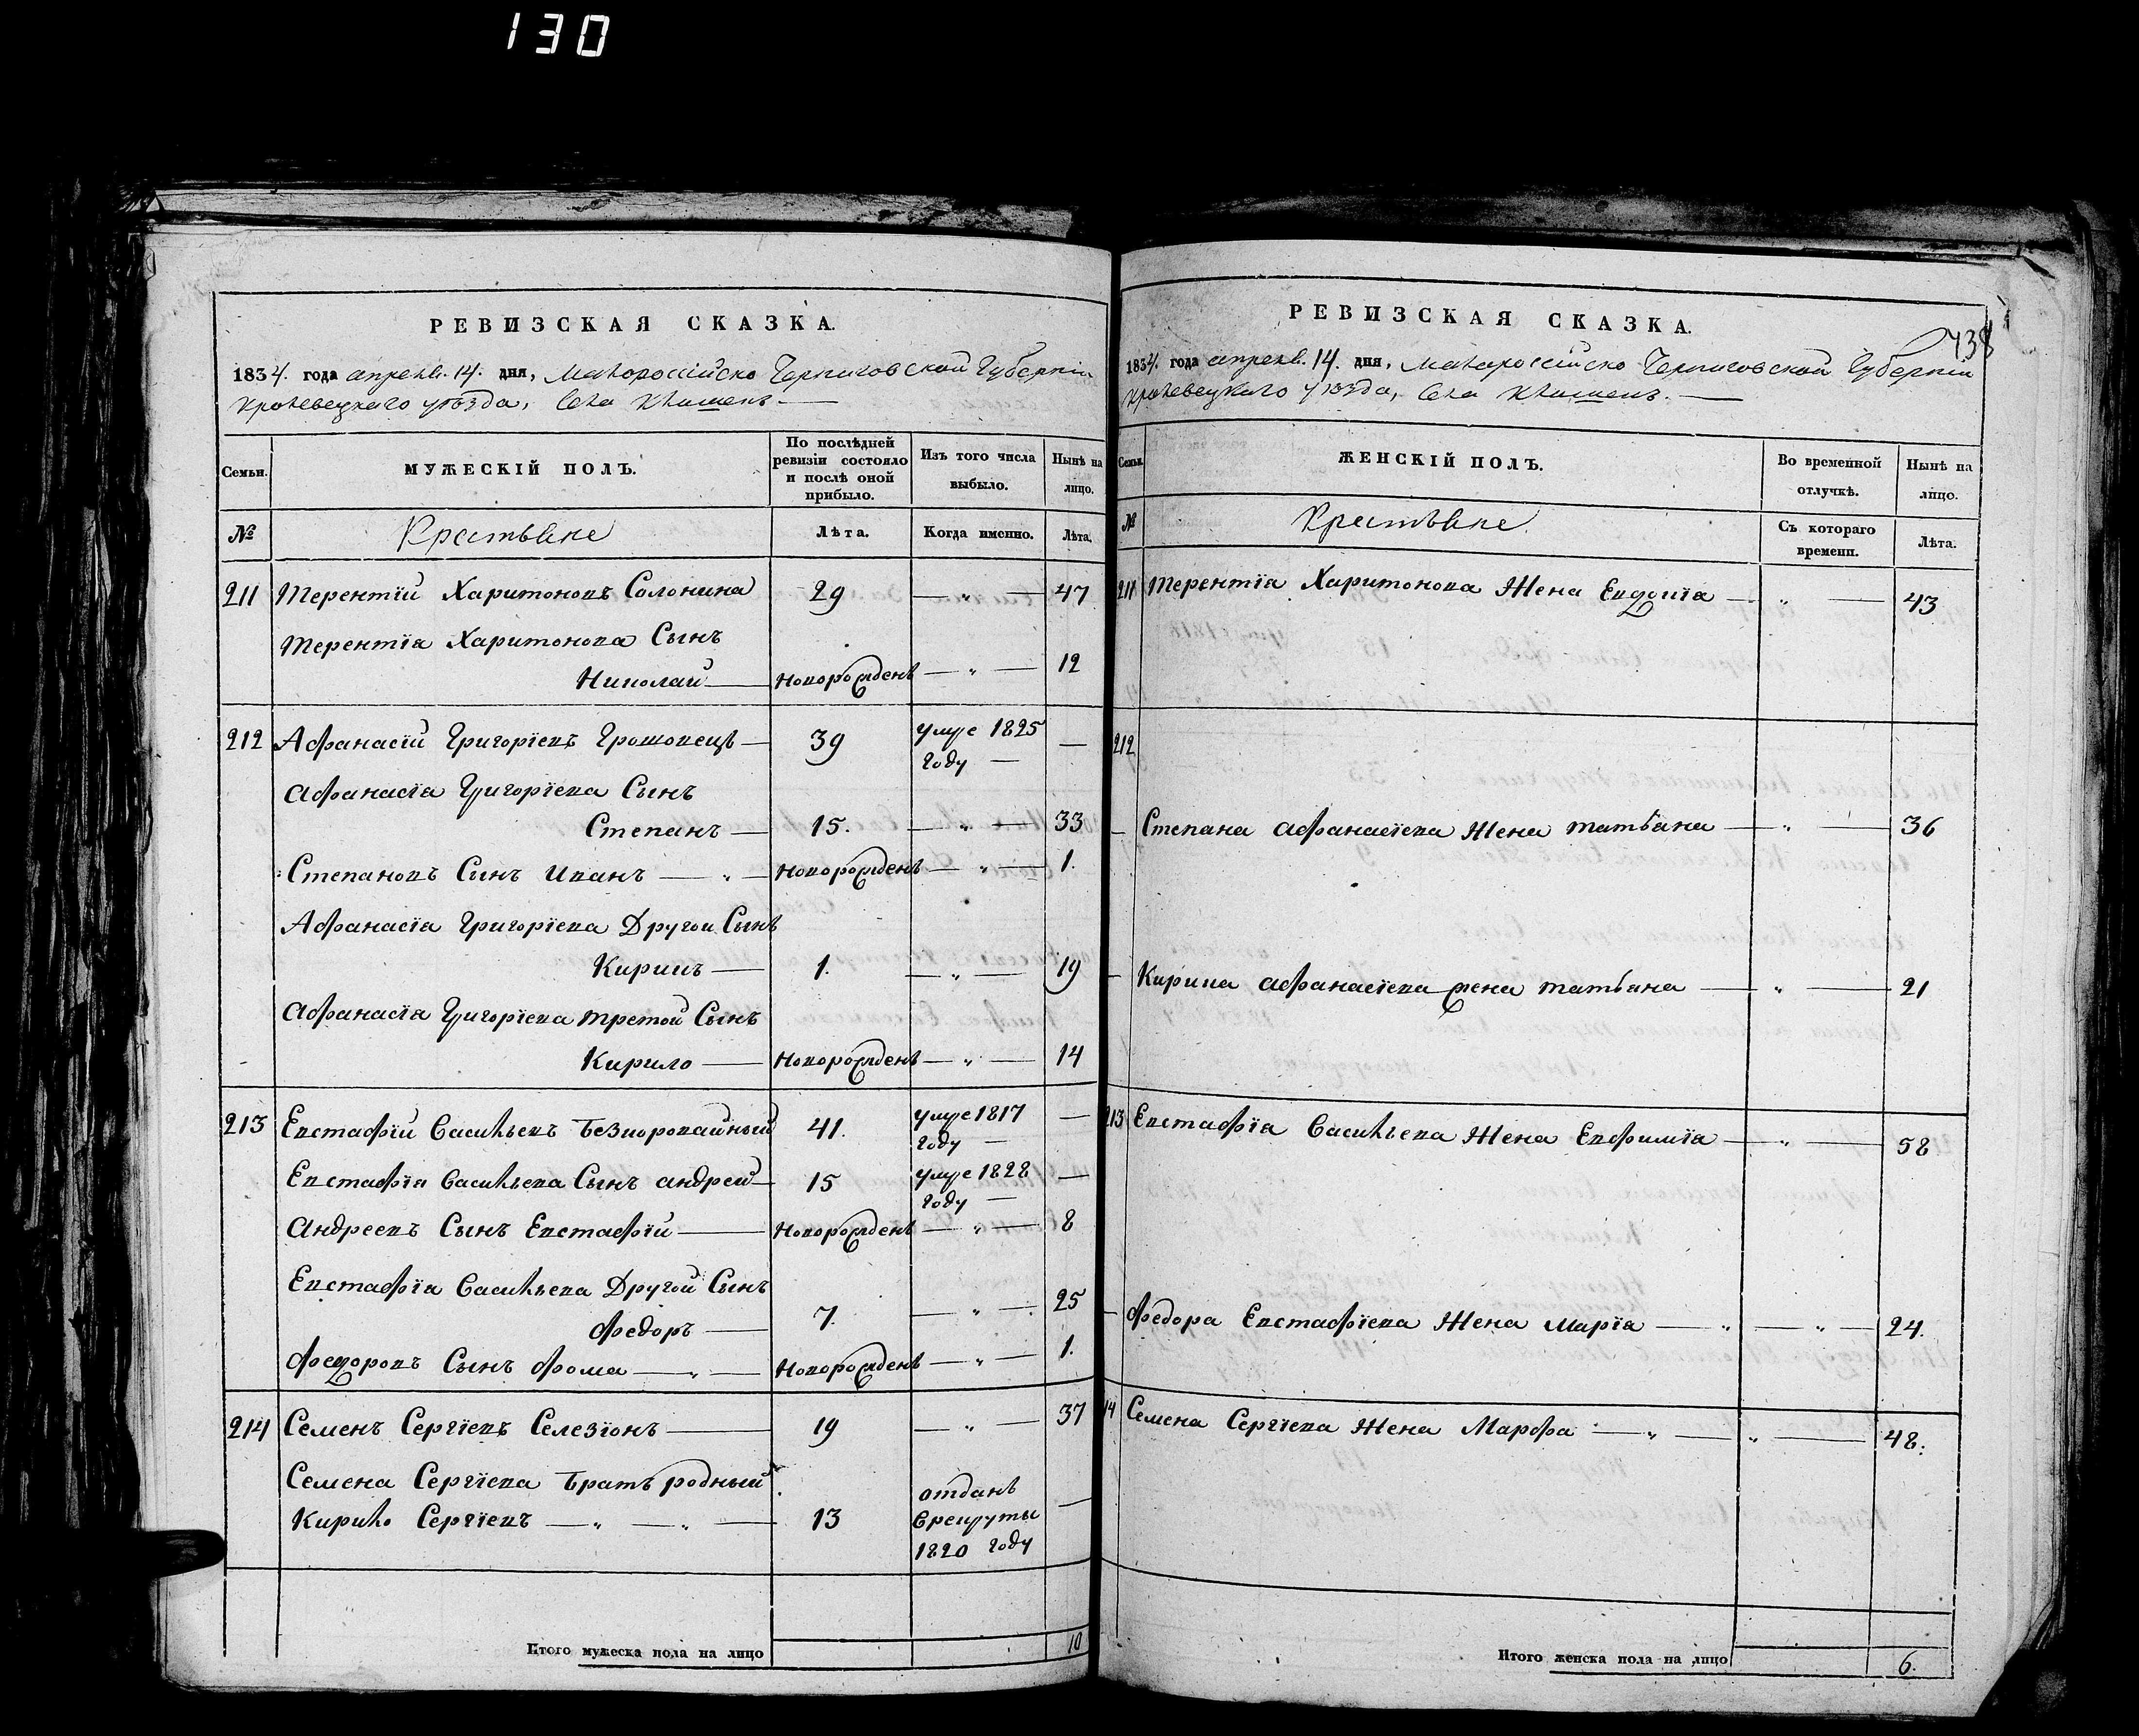 130
РЕВИЗСКАЯ СКАЗКА.
1834. года апреля. 14. дня, Малороссійско Черниговской Губерніи
Кролевецкаго уѣзда, Села Клишекъ.
Семьи. МУЖЕСКІЙ ПОЛЪ. По послѣдней ревизіи состояло и послѣ оной прибыло. Изъ того числа выбыло. Нынѣ на лицо.
№ Крестьяне Лѣта. Когда именно. Лѣта.
211 Терентій Харитоновъ Солонина 29 — „ — 47
Терентія Харитонова Сынъ
Николай — новорожденъ — „ — 12
212 Афанасій Григоріевъ Грошовецъ — 39 умре 1825 году — —
Афанасія Григоріева Сынъ
Степанъ — 15. — „ — 33
Степановъ Сынъ Иванъ — „ — новорожденъ — „ — 1.
Афанасія Григоріева Другой Сынъ
Кирикъ — 1. — „ — 19
Афанасія Григоріева третой Сынъ
Кирило — новорожденъ — „ — 14
213 Евстафій Васильевъ 41. умре 1817 году — —
Евстафія Васильева Сынъ андрей — 15 умре 1828 году — —
Андреевъ Сынъ Евстафій — новорожденъ — „ — 8
Евстафія Васильева Другой Сынъ
Федоръ — 7. — „ — 25
Федоровъ Сынъ Фома — „ — новорожденъ — „ — 1.
214 Семенъ Сергіевъ Селезіонъ — 19 — „ — 37
Семена Сергіева братъ родный
Кирило Сергіевъ — „ — „ — 13 отданъ врекруты 1820 году —
Итого мужеска пола на лицо 10
738
РЕВИЗСКАЯ СКАЗКА.
1834. года апреля. 14. дня, Малороссійско Черниговской Губерніи
Кролевецкаго уѣзда, Села Клишекъ.
Семьи. ЖЕНСКІЙ ПОЛЪ. Во временной отлучкѣ. Нынѣ на лицо.
№ Крестьяне Съ котораго времени. Лѣта.
211 Терентія Харитонова Жена Евдокія — „ — 43
212
— Степана Афанасіева Жена татьяна — „ — 36
— Кирика Афанасіева жена татьяна — „ — 21
213 Евстафія Васильева Жена Евфимія — „ — 58
— Федора Евстафіева Жена Марія — „ — „ — 24.
14 Семена Сергіева Жена Марфа — „ — „ — 48.
Итого женска пола на лицо 6.